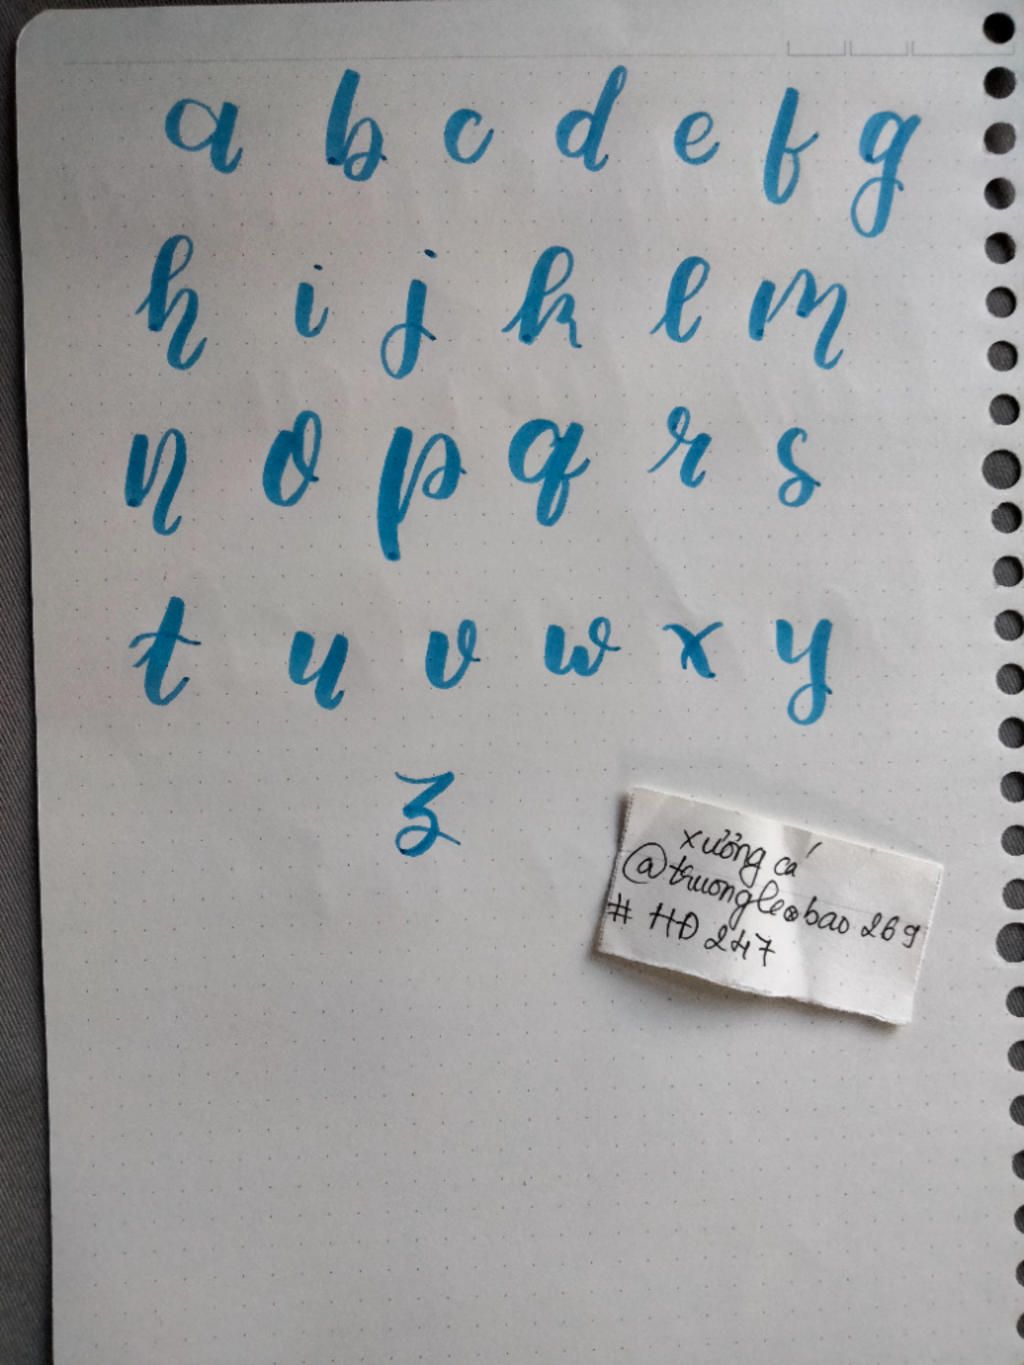 a b c d e f g
h i j k l m
n o p q r s
t u v w x y
z
xưởng cá
@truongleobao269
# HĐ 247